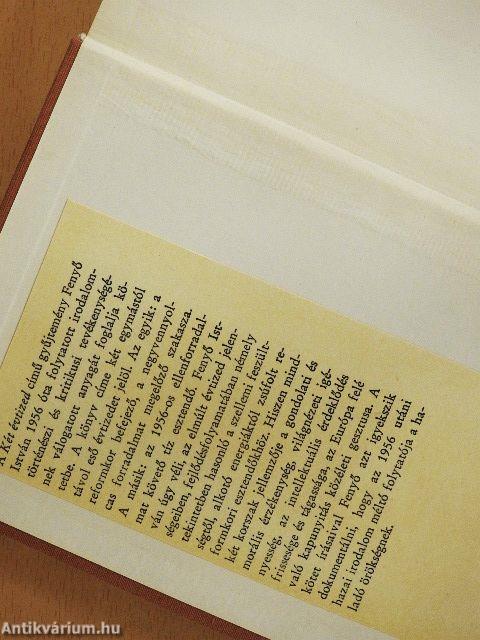 A Két évtized című gyűjtemény Fenyő
István 1956 óta folytatott irodalom-
történészi és kritikusi tevékenységé-
nek válogatott anyagát foglalja kö-
tetbe. A könyv címe két egymástól
távol eső évtizedet jelöl. Az egyik: a
reformkor befejező, a negyvennyol-
cas forradalmat megelőző szakasza.
A másik: az 1956-os ellenforradal-
mat követő tíz esztendő. Fenyő Ist-
ván úgy véli, az elmúlt évtized jelen-
ségeiben, fejlődésfolyamatában némely
tekintetben hasonló a szellemi feszült-
ségtől, alkotó energiáktól zsúfolt re-
formkori esztendőkhöz. Hiszen mind-
két korszak jellemzője a gondolati és
morális érzékenység, világnézeti igé-
nyesség, az intellektuális érdeklődés
frissesége és tágassága, az Európa felé
való kapunyitás közéleti gesztusa. A
kötet írásaival Fenyő azt igyekszik
dokumentálni, hogy az 1956 utáni
hazai irodalom méltó folytatója a ha-
ladó örökségnek.
Antikvárium.hu